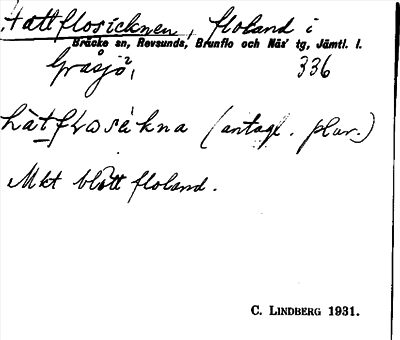 Hattflosicknen, floland i
Bräcke sn, Revsunds, Brunflo och Näs' tg, Jämtl. l.
Gräsjö, 336
(antagl. plur.)
Mkt blött floland.
C. LINDBERG 1931.